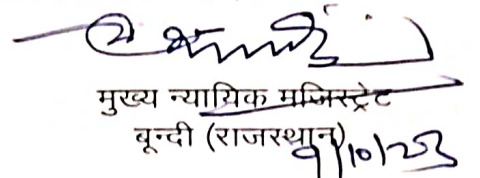 मुख्य न्यायिक मजिस्ट्रेट
बून्दी (राजस्थान)
9/10/23